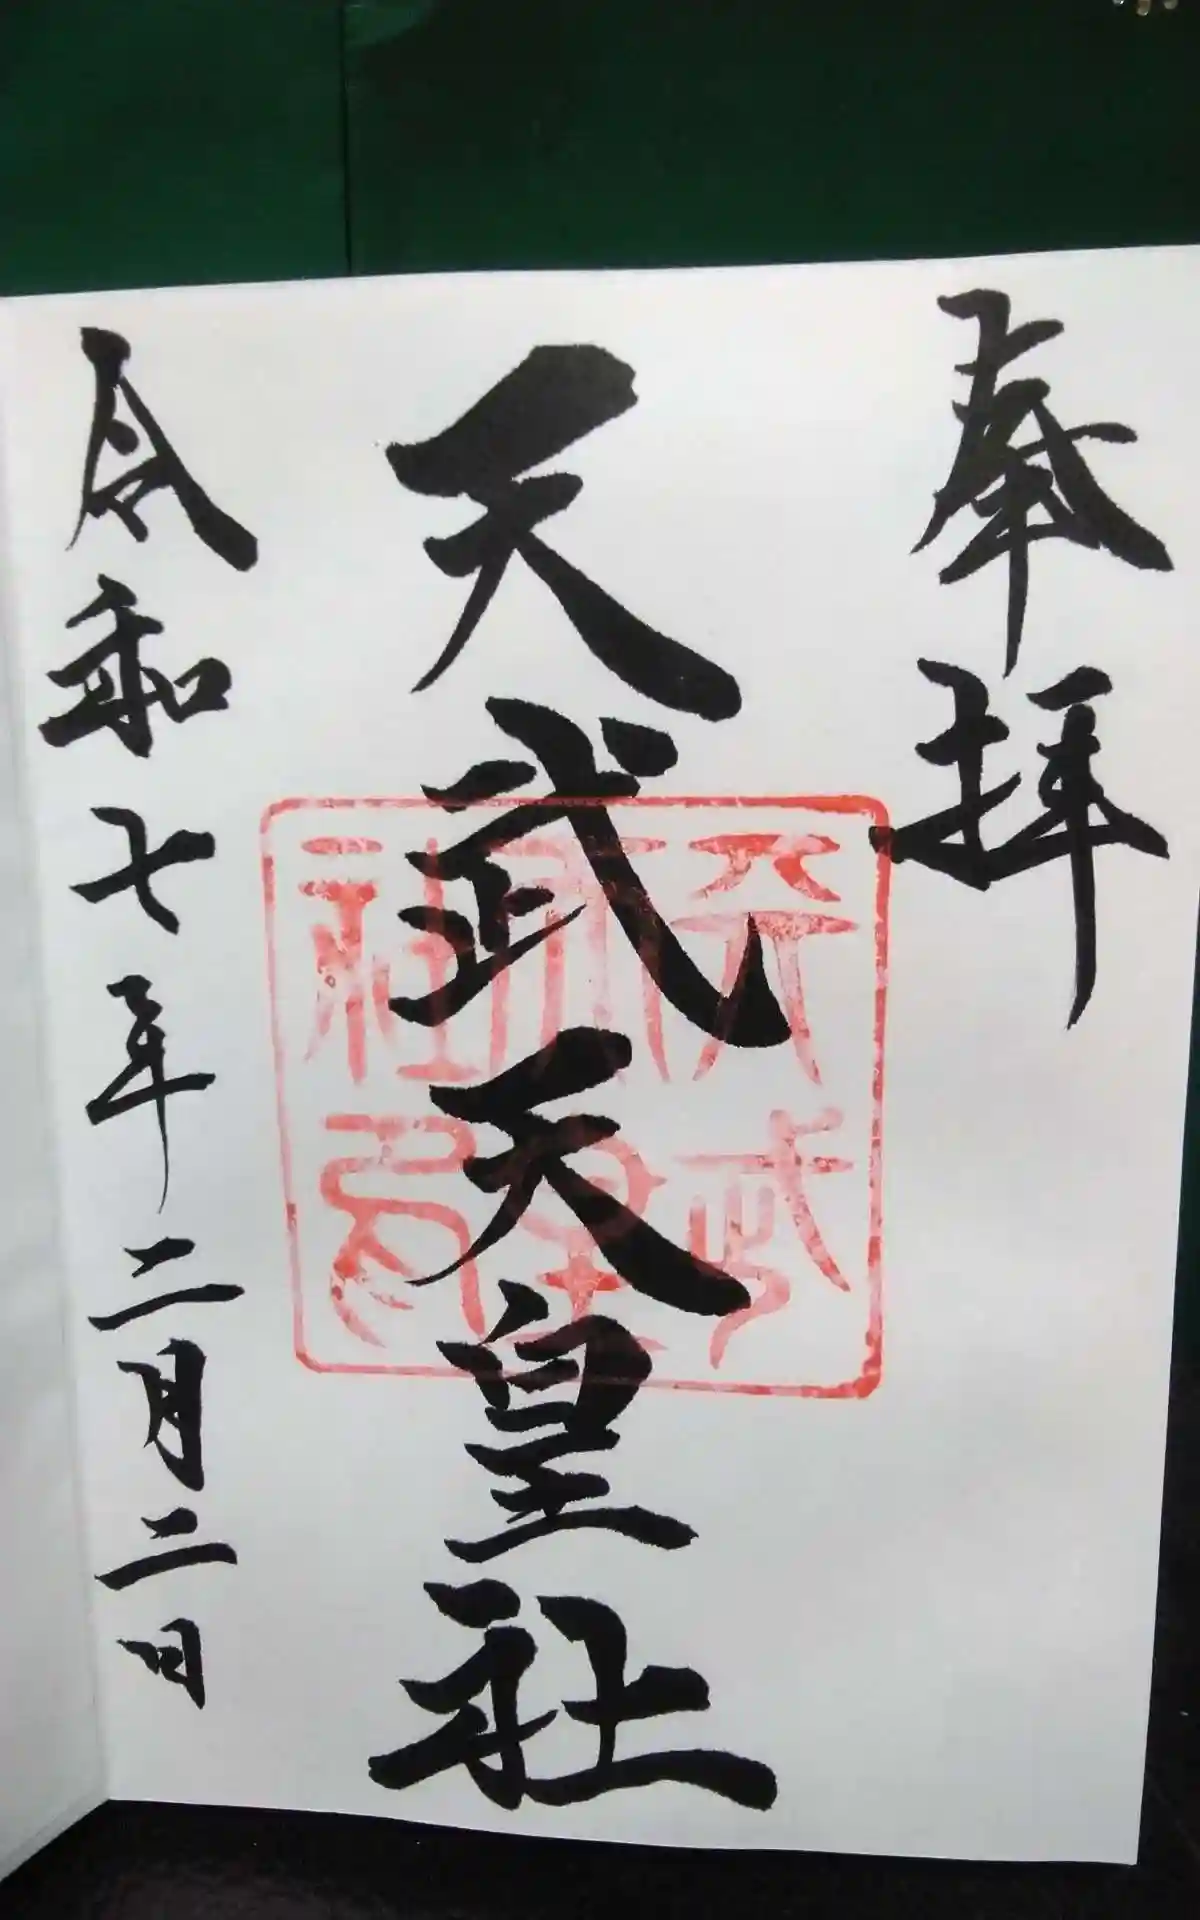 奉拝
天武天皇社
天武天皇社印
令和七年二月二日